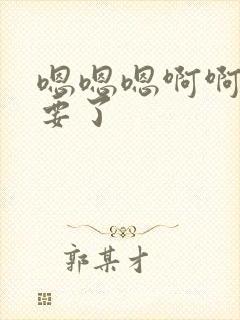 嗯嗯嗯啊啊
要了
郭某才